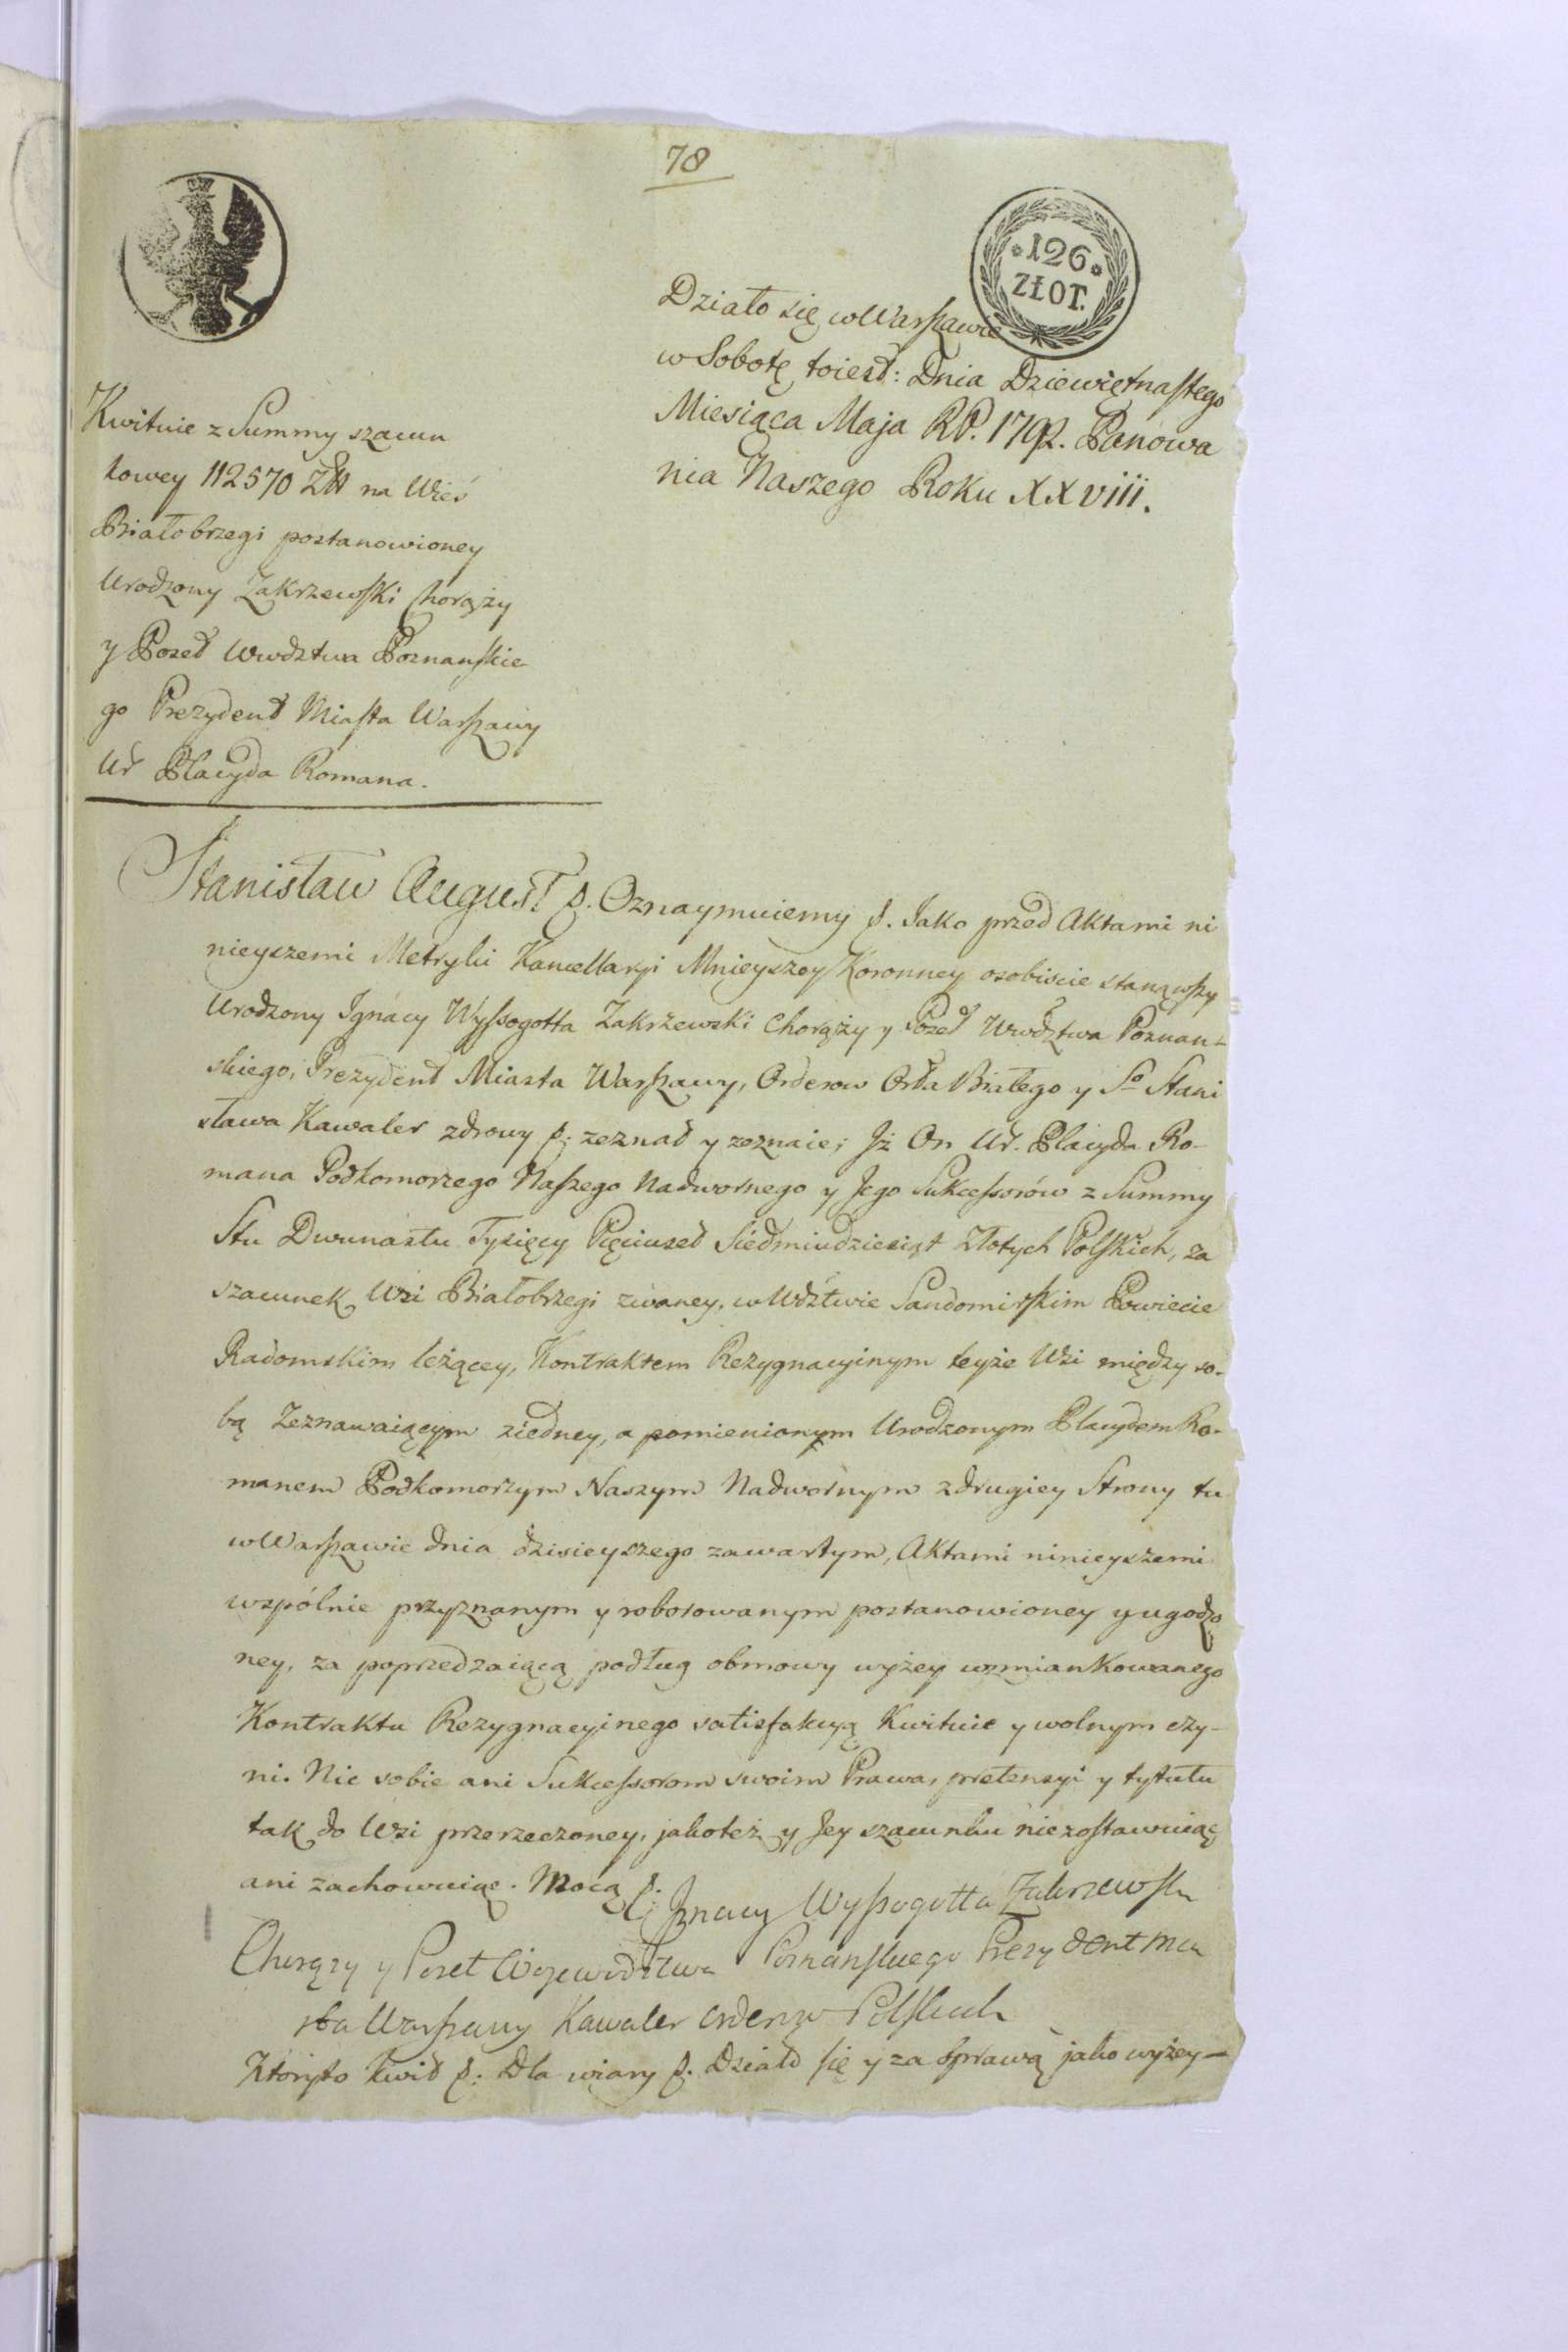 78
*126*
ZŁOT.
Działo się w Warszawie
w Sobotę toiest: Dnia Dziewiętnastego
Miesiąca Maja RP. 1792. Panowa
nia Naszego Roku XXVIII.
Kwituie z Summy szacun
kowey 112570 Zł na Wieś
Białobrzegi postanowioney
Urodzony Zakrzewski Chorąży
y Poseł Wwdztwa Poznanskie
go Prezydent Miasta Warszawy
Ur Placyda Romana.
Stanisław August p. Oznaymuiemy p. Jako przed Aktami ni
nieyszemi Metryki Kancellaryi Mnieyszey Koronney osobiscie stanąwszy
Urodzony Ignacy Wyssogotta Zakrzewski Chorąży y Poseł Wwdztwa Poznan-
skiego, Prezydent Miasta Warszawy, Orderow Orła Białego y So Stani
sława Kawaler zdrowy p. zeznał y zeznaie; Jż On Ur. Placyda Ro-
mana Podkomorzego Naszego Nadwornego y Jego Sukcessorów z Summy
Stu Dwunastu Tysięcy Pięciuset Siedmiudziesiąt Złotych Polskich, za
szacunek Wsi Białobrzegi zwaney, w Wdztwie Sandomirskim Powiecie
Radomskim leżącey, Kontraktem Rezygnacyinym teyże Wsi między so-
bą Zeznawaiącym ziedney, a pomienionym Urodzonym Placydem Ro-
manem Podkomorzym Naszym Nadwornym zdrugiey Strony tu
w Warszawie dnia dzisieyszego zawartym, Aktami ninieyszemi
wspólnie przyznanym y roborowanym postanowioney y ugodzo
ney, za poprzedzaiącą podług obmowy wyżey wzmiankowanego
Kontraktu Rezygnacyinego satisfakcyą Kwituie y wolnym czy-
ni. Nic sobie ani Sukcessorom swoim Prawa, pretensyi y tytułu
tak do Wsi przerzeczoney, jakoteż y Jey szacunku niezostawuiąc
ani zachowuiąc. Mocą p.
Jgnacy Wyssogotta Zakrzewski
Chorąży y Poseł Woiewodztwa Poznanskiego Prezydent Mia
sta Warszawy Kawaler orderow Polskich
Któryto Kwit p. Dla wiary p. Działo się y za sprawą jako wyżey—